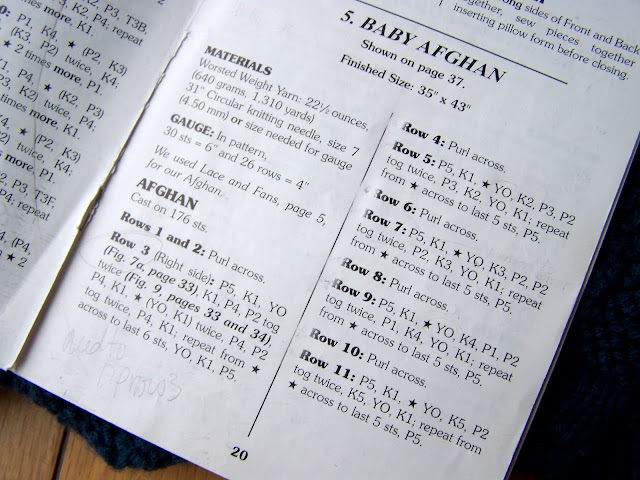 K2, P3, T3B,
K2, P4, repeat
more, K1.
P1, K4, ★ (P2, K3)
(K3, P2) twice, K4;
★ 2 times more, P1.
K1, P4, ★ (K2, P3)
P3, K2) twice, P4;
times more, K1.
(P2, K3)
twice, K4;
more, P1.
(K2, P3)
twice, P4;
more, K1.
P3, T3F,
P4, repeat
(P4,
★ 2
long sides of Front and Back
together, sew pieces together
inserting pillow form before closing.
5. BABY AFGHAN
Shown on page 37.
Finished Size: 35" x 43"
MATERIALS
Worsted Weight Yarn: 22½ ounces,
(640 grams, 1,310 yards)
31" Circular knitting needle, size 7
(4.50 mm) or size needed for gauge
GAUGE: In pattern,
30 sts = 6" and 26 rows = 4"
We used Lace and Fans, page 5,
for our Afghan.
AFGHAN
Cast on 176 sts.
Rows 1 and 2: Purl across.
Row 3 (Right side): P5, K1, YO
(Fig. 7a, page 33), K1, P4, P2 tog
twice (Fig. 9, pages 33 and 34),
P4, K1, ★ (YO, K1) twice, P4, P2
tog twice, P4, K1; repeat from ★
across to last 6 sts, YO, K1, P5.
Row 4: Purl across.
Row 5: P5, K1, ★ YO, K2, P3, P2
tog twice, P3, K2, YO, K1; repeat
from ★ across to last 5 sts, P5.
Row 6: Purl across.
Row 7: P5, K1, ★ YO, K3, P2, P2
tog twice, P2, K3, YO, K1; repeat
from ★ across to last 5 sts, P5.
Row 8: Purl across.
Row 9: P5, K1, ★ YO, K4, P1, P2
tog twice, P1, K4, YO, K1; repeat
from ★ across to last 5 sts, P5.
Row 10: Purl across.
Row 11: P5, K1, ★ YO, K5, P2
tog twice, K5, YO, K1; repeat from
★ across to last 5 sts, P5.
20